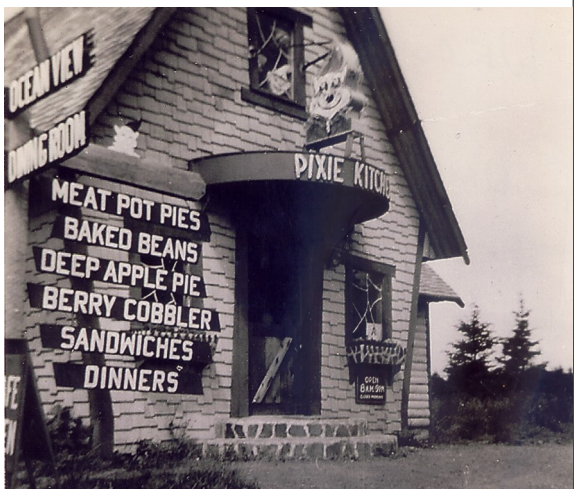 OCEAN VIEW
DINING ROOM
PIXIE KITCHE
MEAT POT PIES
BAKED BEANS
DEEP APPLE PIE
BERRY COBBLER
SANDWICHES
DINNERS
OPEN
8 AM. 9 PM